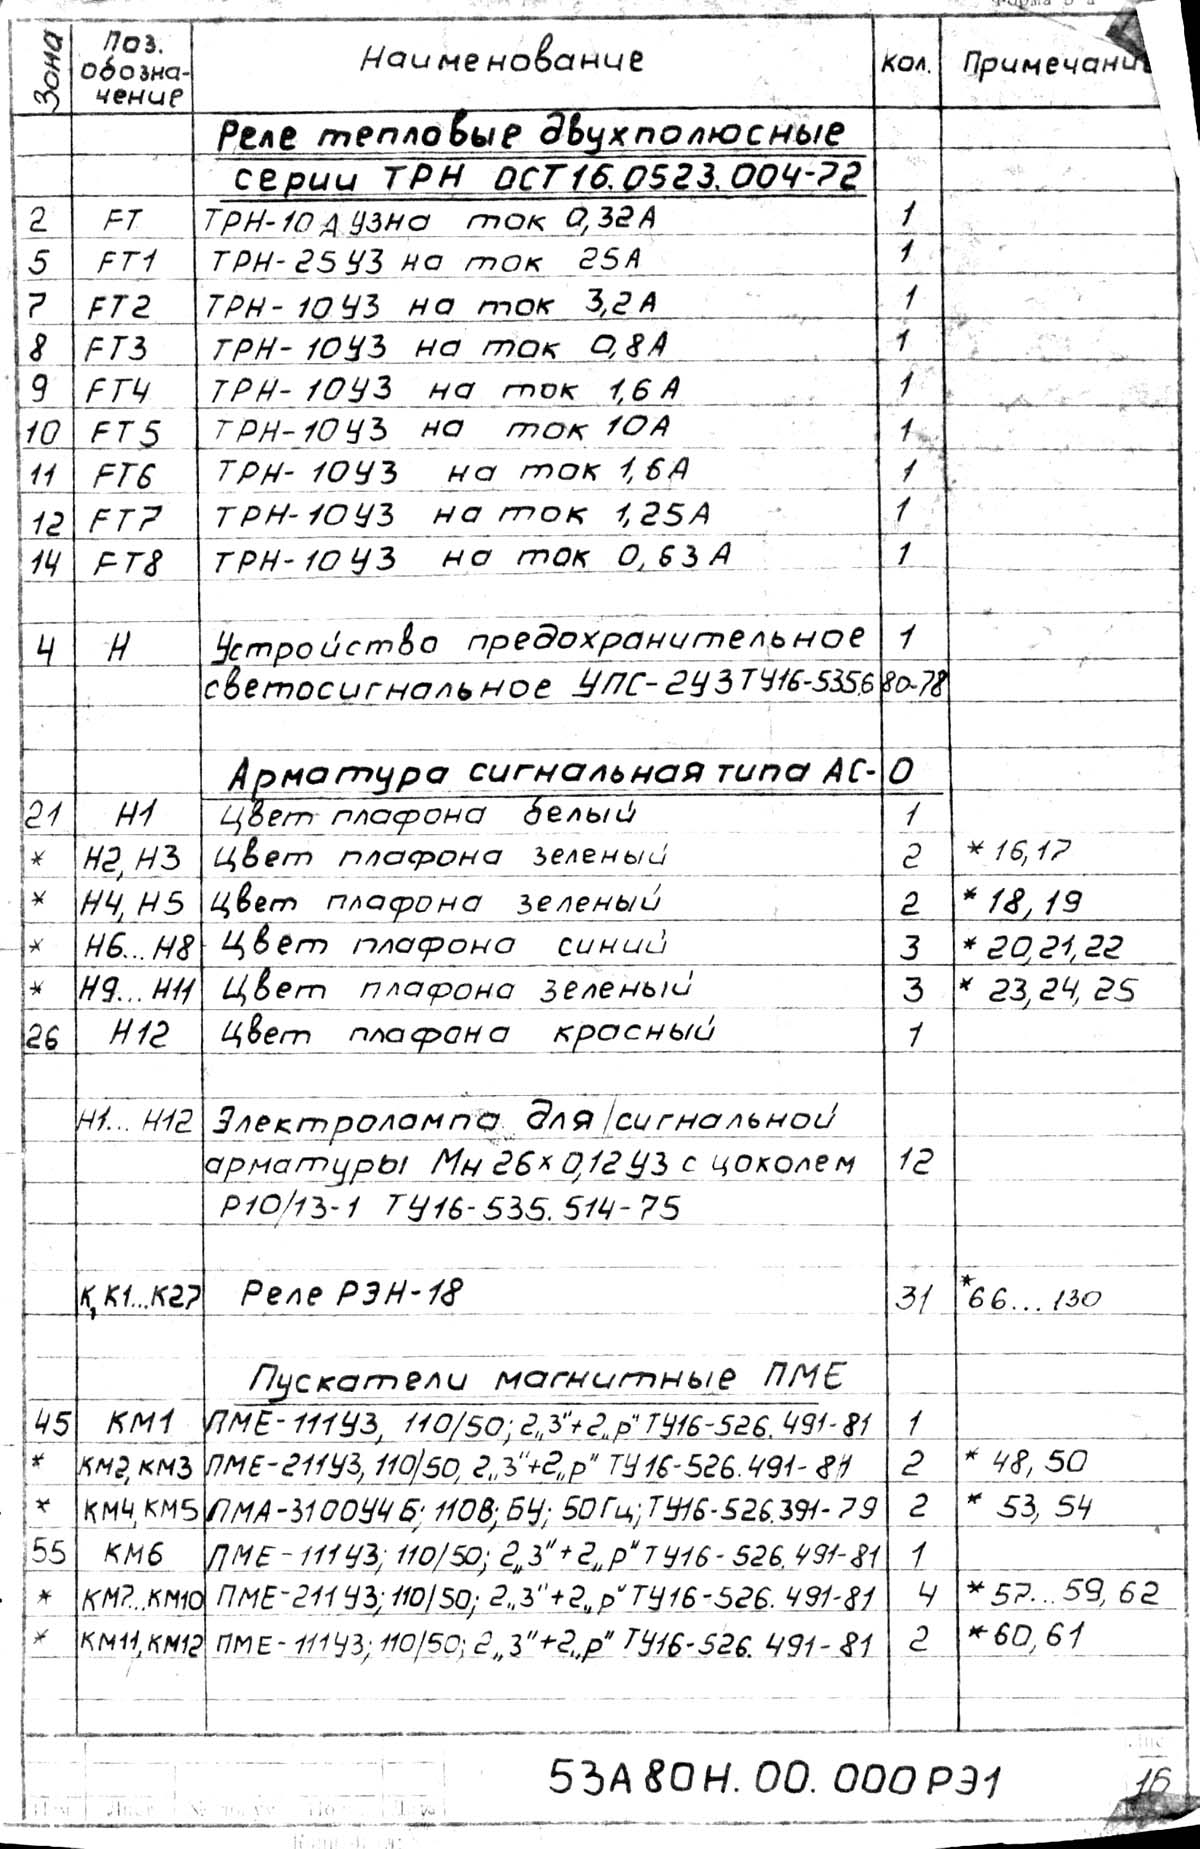 Зона Поз. обозна-чение Наименование Кол. Примечание
Реле тепловые двухполюсные
серии ТРН ОСТ16.0523.004-72
2 FT ТРН-10А У3 на ток 0,32А 1
5 FT1 ТРН-25У3 на ток 25А 1
7 FT2 ТРН-10У3 на ток 3,2А 1
8 FT3 ТРН-10У3 на ток 0,8А 1
9 FT4 ТРН-10У3 на ток 1,6А 1
10 FT5 ТРН-10У3 на ток 10А 1
11 FT6 ТРН-10У3 на ток 1,6А 1
12 FT7 ТРН-10У3 на ток 1,25А 1
14 FT8 ТРН-10У3 на ток 0,63А 1
4 Н Устройство предохранительное 1
светосигнальное УПС-2У3 ТУ16-535.680-78
Арматура сигнальная типа АС-0
21 Н1 Цвет плафона белый 1
* Н2, Н3 Цвет плафона зеленый 2 * 16,17
* Н4, Н5 Цвет плафона зеленый 2 * 18, 19
* Н6...Н8 Цвет плафона синий 3 * 20,21,22
* Н9...Н11 Цвет плафона зеленый 3 * 23,24,25
26 Н12 Цвет плафона красный 1
Н1...Н12 Электролампа для сигнальной
арматуры Мн 26х0,12У3 с цоколем 12
Р10/13-1 ТУ16-535.514-75
К, К1...К27 Реле РЭН-18 31 *66...130
Пускатели магнитные ПМЕ
45 КМ1 ПМЕ-111У3, 110/50; 2„З"+2„р" ТУ16-526.491-81 1
* КМ2, КМ3 ПМЕ-211У3, 110/50, 2„З"+2„р" ТУ16-526.491-81 2 * 48, 50
* КМ4, КМ5 ПМА-3100У4Б; 110В; БУ; 50Гц; ТУ16-526.391-79 2 * 53, 54
55 КМ6 ПМЕ-111У3; 110/50; 2„З"+2„р" ТУ16-526.491-81 1
* КМ7...КМ10 ПМЕ-211У3; 110/50; 2„З"+2„р" ТУ16-526.491-81 4 * 57...59, 62
* КМ11, КМ12 ПМЕ-111У3; 110/50; 2„З"+2„р" ТУ16-526.491-81 2 *60, 61
53А80Н.00.000РЭ1
16